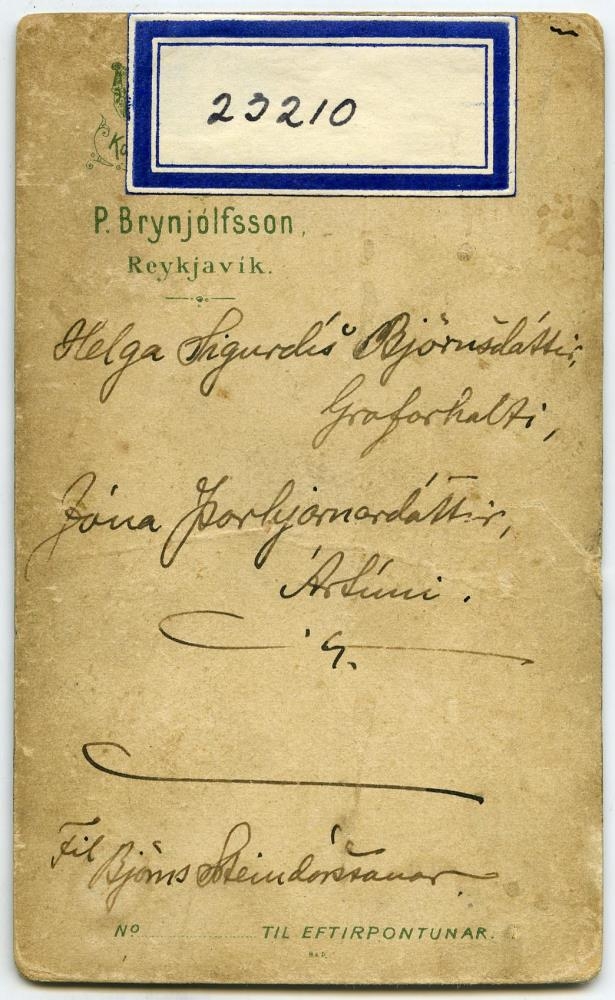 23210
P. Brynjólfsson,
Reykjavík.
Helga Sigurdís Björnsdóttir,
Grafarholti,
Jóna Þorbjarnardóttir,
Ártúni.
Til Björns Steindórssonar
No TIL EFTIRPONTUNAR.